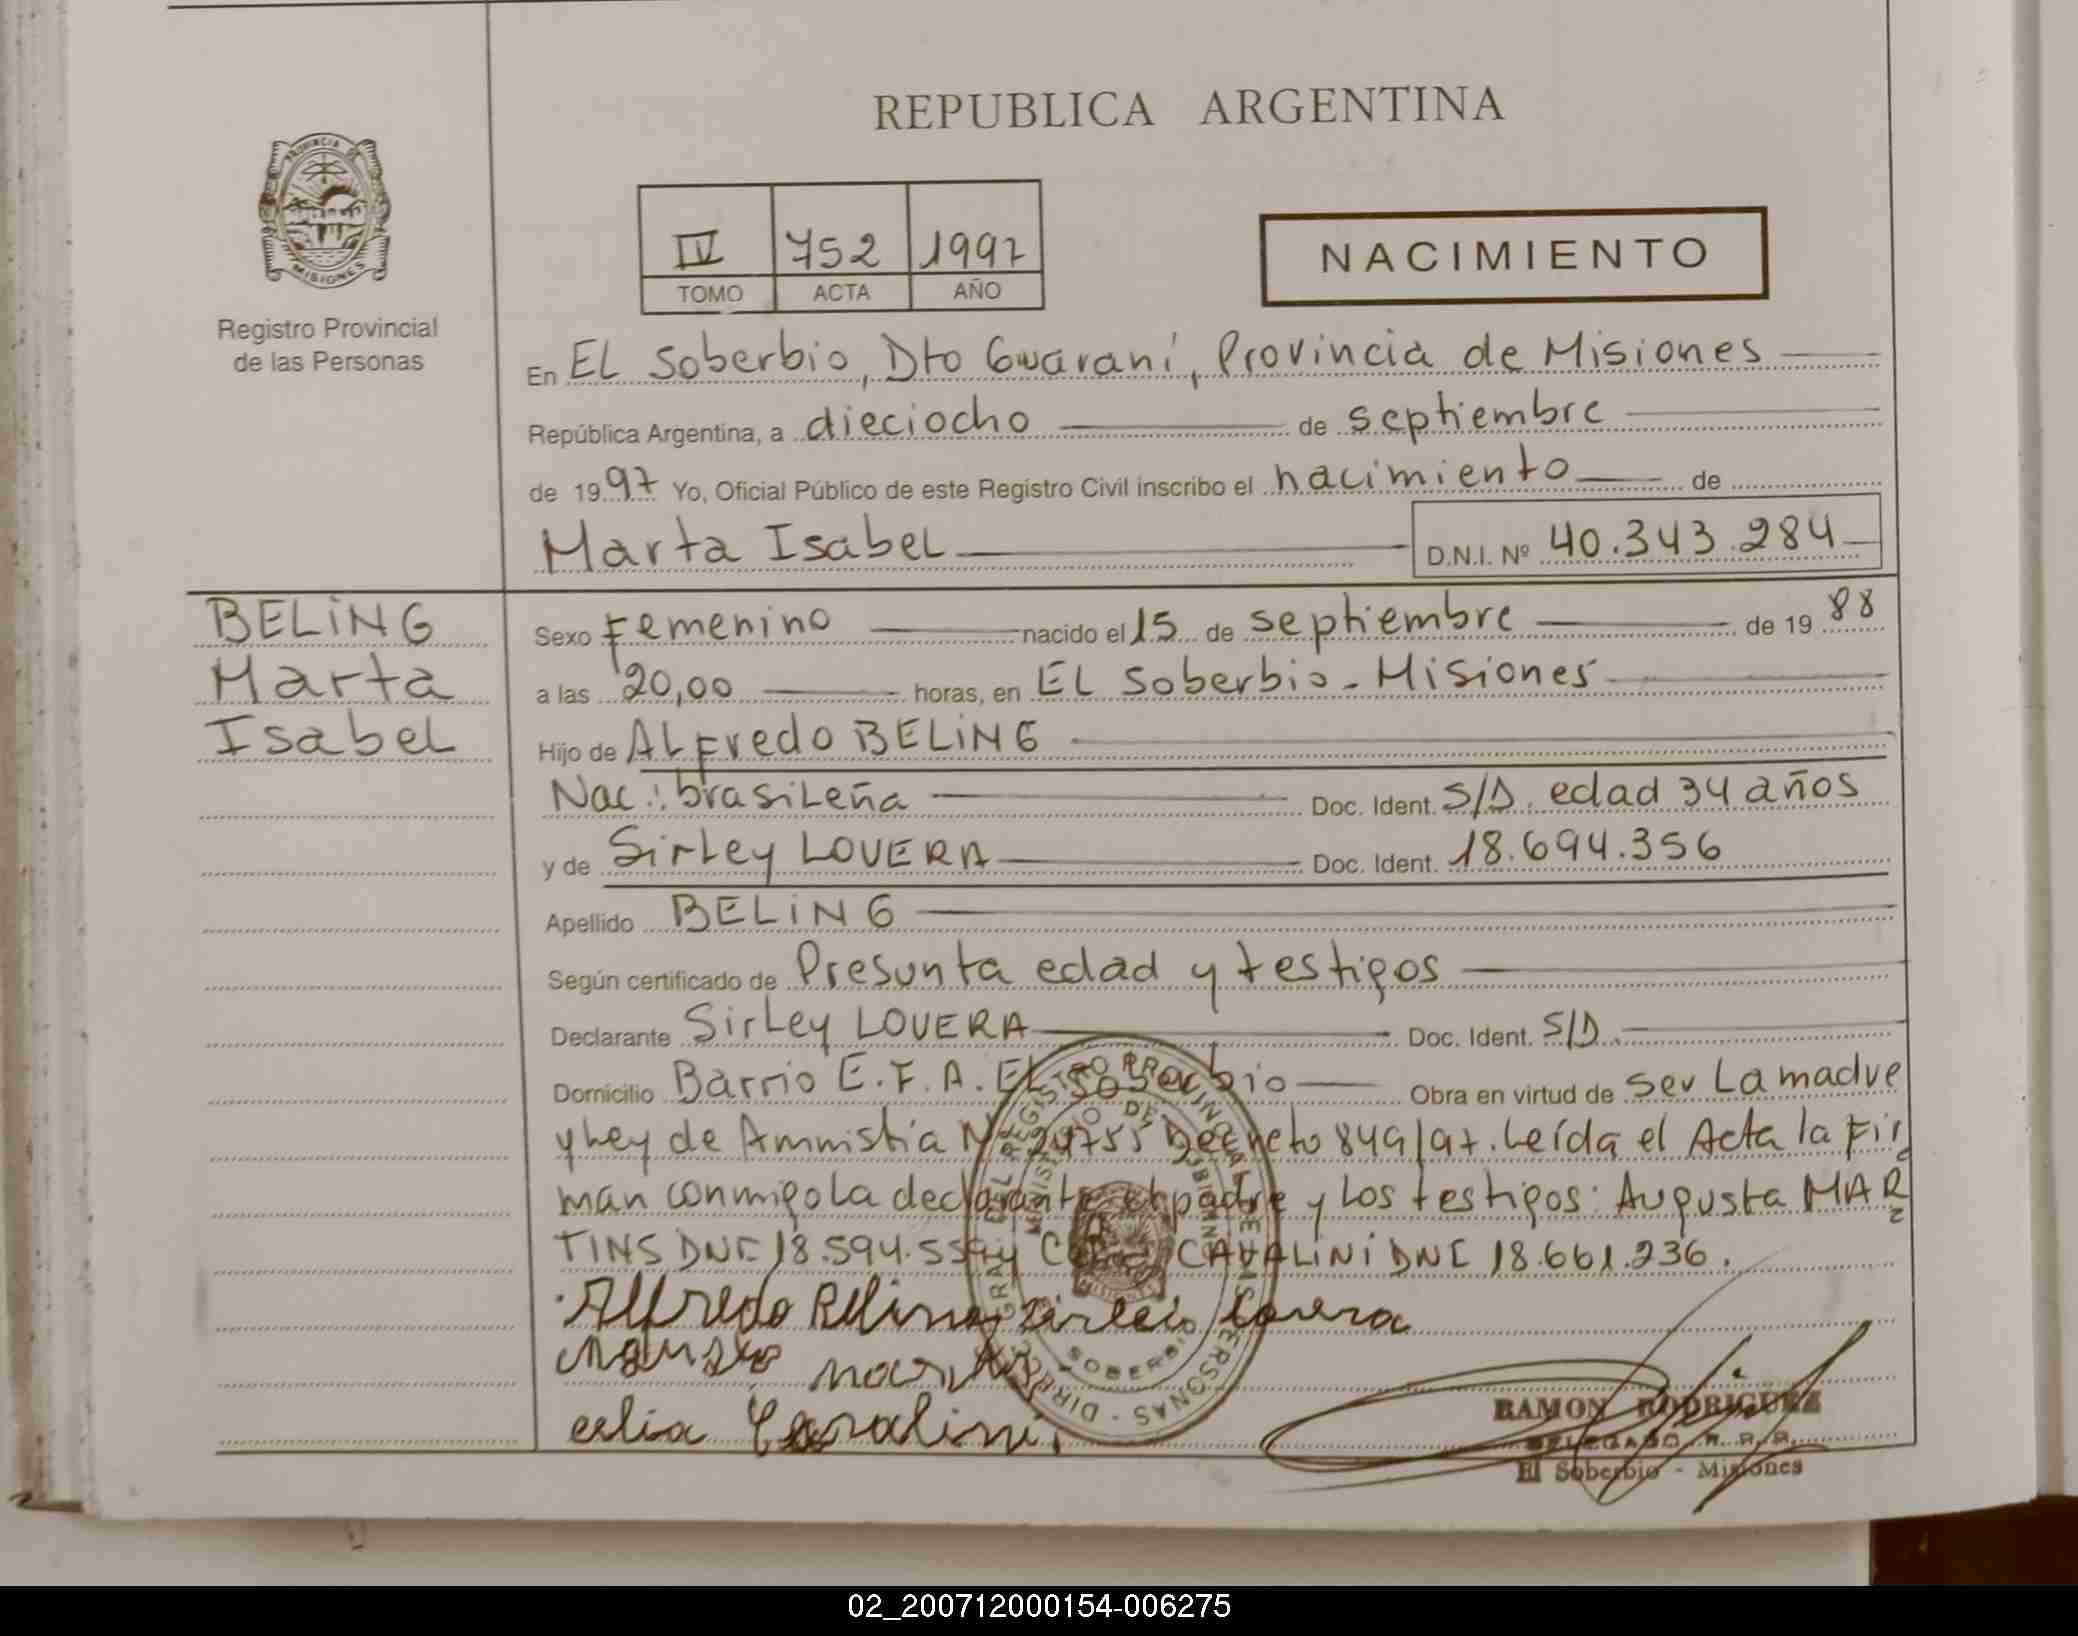 REPUBLICA ARGENTINA
PROVINCIA DE
MISIONES
Registro Provincial
de las Personas
IV 752 1997
TOMO ACTA AÑO
NACIMIENTO
En EL Soberbio, Dto Guaraní, Provincia de Misiones
República Argentina, a dieciocho de septiembre
de 1997 Yo, Oficial Público de este Registro Civil inscribo el nacimiento de
Marta Isabel D.N.I. Nº 40.343.284
BELiNG
Marta
Isabel
Sexo Femenino nacido el 15 de septiembre de 1988
a las 20,00 horas, en EL Soberbio - Misiones
Hijo de ALFredo BELiNG
Nac.: brasiLeña Doc. Ident. S/D. edad 34 años
y de SirLey LOVERA Doc. Ident. 18.694.356
Apellido BELiNG
Según certificado de Presunta edad y testigos
Declarante SirLey LOVERA Doc. Ident. S/D.
Domicilio Barrio E.F.A. EL Soberbio Obra en virtud de ser La madre
y Ley de Amnistia Nº 24755 Decreto 849/97. Leída el Acta la Fir
man conmigo La declarante el padre y Los testigos: Augusta MAR
TINS DNI 18.594.559 y CAVALiNi DNI 18.661.236.
Alfredo Beling Sirlei Lovera
celia Cavalini
RAMON RODRIGUEZ
DELEGADO R. P. P.
El Soberbio - Misiones
02_200712000154-006275